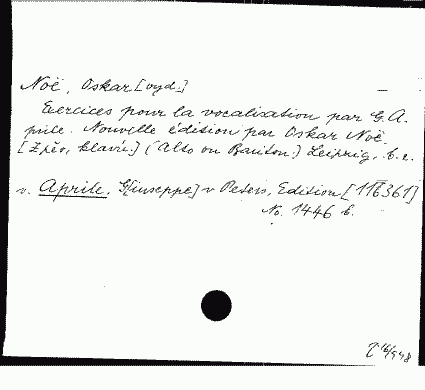 Noë, Oskar [vyd.] —
Exercices pour la vocalisation par G. A-
prile. Nouvelle édition par Oskar Noë.
[Zpěv, klavír.] (Alto ou Bariton.) Leipzig, b. r.
v. Aprile, G[iuseppe] v Peters, Edition [116361]
No. 1446 b.